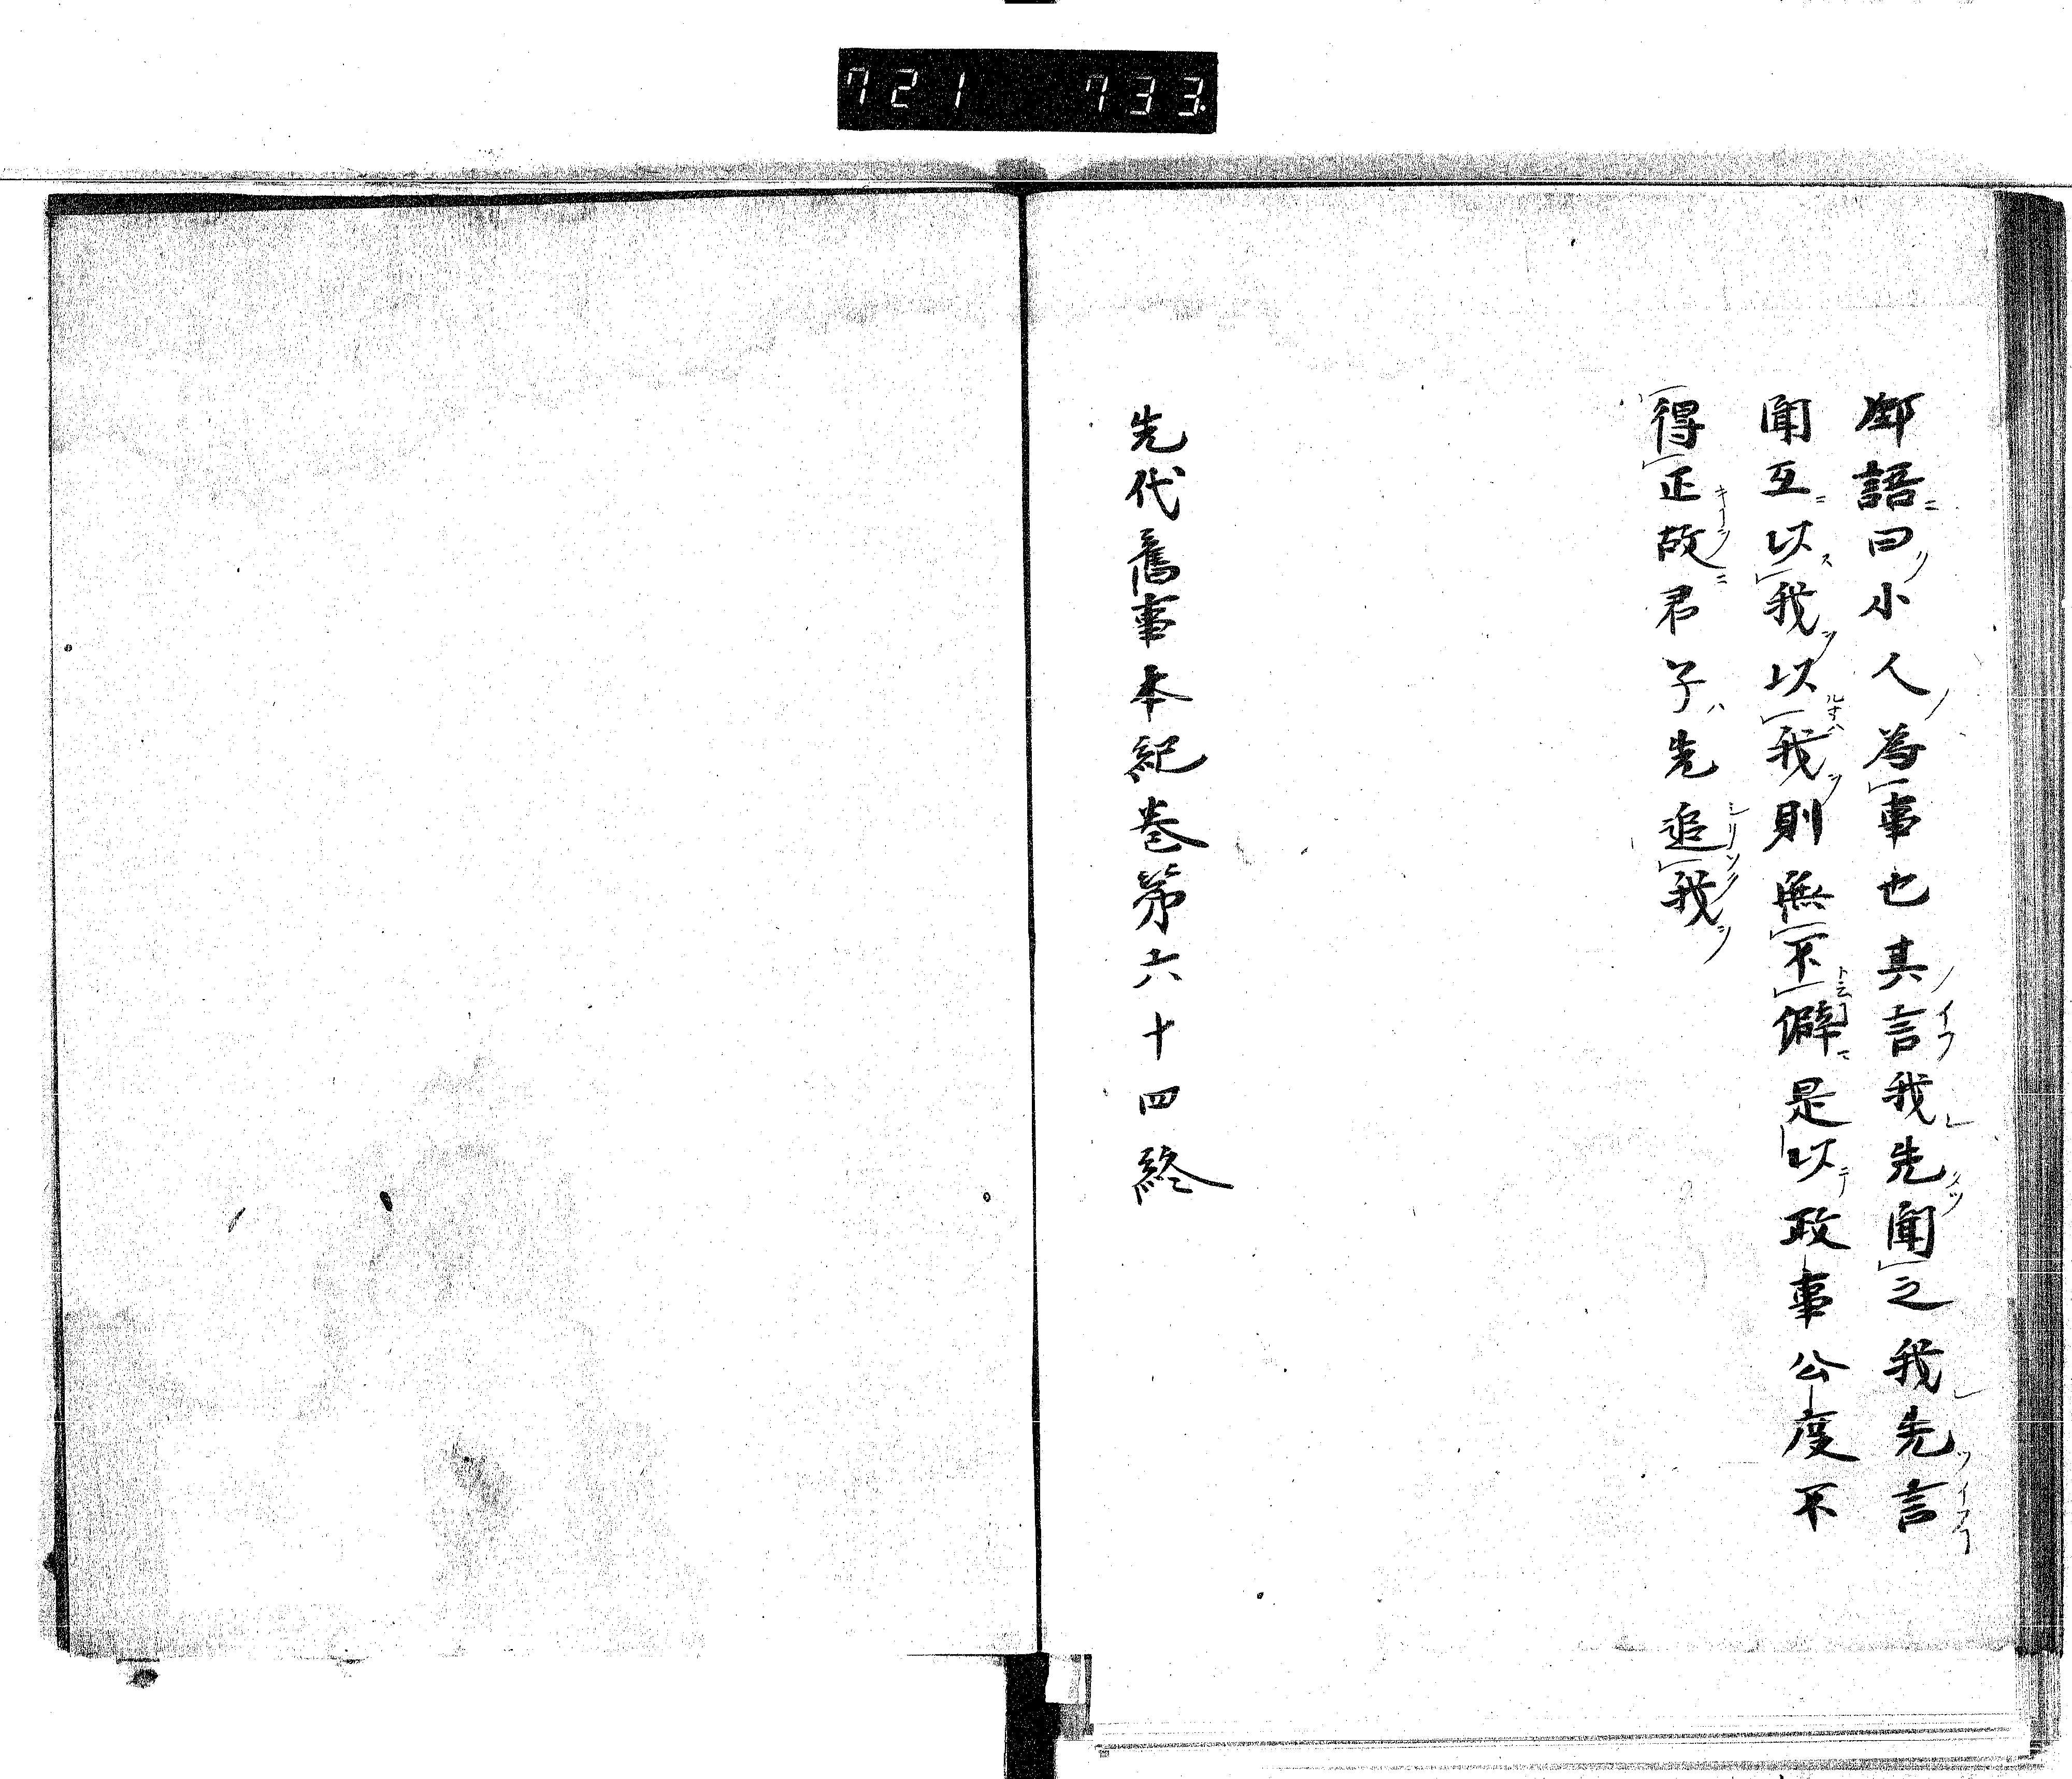 721 733.
御語曰小人為事也其言我先聞之我先言
聞互以我以我則無不僻是以政事公度不
得正故君子先追我
先代舊事本紀巻第六十四終